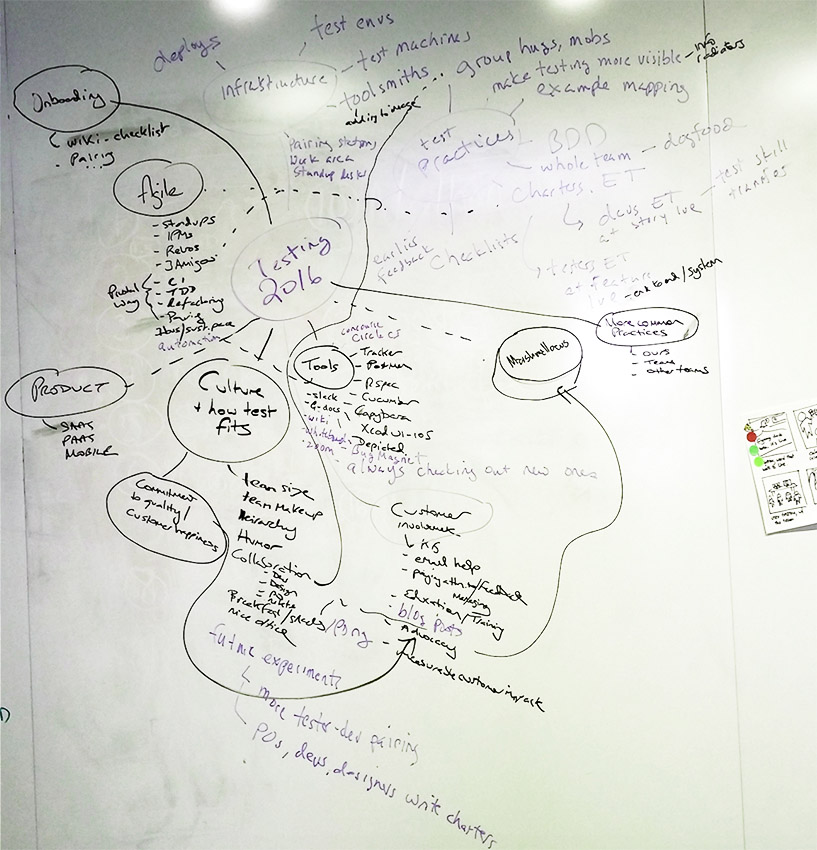 deploys
test envs
Infrastructure
test machines
toolsmiths
group hugs, mobs
make testing more visible - info radiators
example mapping
Onboarding
wiki - checklist
- Pairing
Pairing stations
Work area
Standup desks
test practices
BDD
whole team - dogfood
Charters, ET
devs ET
at story lvl
test skill
transfer
earlier feedback
Checklists
testers ET
at feature
lvl - end to end/system
Agile
- Standups
- IPMs
- Retros
- 3 Amigos
Pivotal Way
- CI
- TDD
- Refactoring
- Pairing
automation
Testing 2016
More common Practices
- ours
- Teams
- other teams
PRODUCT
SAAS
PAAS
MOBILE
Culture + how test fits
concentric circles
Tools
- Tracker
- Postman
- RSpec
- Cucumber
- Capybara
- slack
- G-docs
- wiki
- whiteboards
- zoom
Depicted
- BugMagnet
- always checking out new ones
Commitment to quality/ Customer happiness
team size
team makeup
Hierarchy
Humor
Collaboration
- Dev
- Design
- PO
- rotate
Breakfast/snacks/Pong
nice office
Customer
involvement
- email help
- Education/Training
- blog posts
- Advocacy
- measurable customer impact
future experiments
more tester-dev pairing
POs, devs, designers write charters